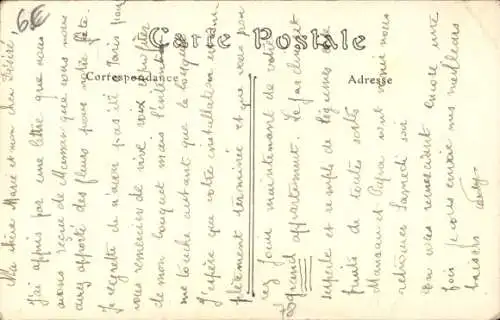 6€
Carte Postale
Correspondance
Adresse
Ma chère Marie et mon cher Désiré,
J'ai appris par une lettre que nous
avons reçue de Maman que vous nous
aviez apporté des fleurs pour notre fête.
Je regrette de n'avoir pas été à Paris pour
vous remercier de vive voix et profiter
de mon bouquet mais l'intention
me touche autant que le bouquet
J'espère que votre installation est com
plètement terminée et que vous pou
vez jouir maintenant de votre
grand appartement. Le jardin est
superbe et rempli de légumes et de
fruits de toutes sortes
Maman et Papa vont venir nous
retrouver Samedi soir
En vous remerciant encore une
fois je vous envoie mes meilleurs
baisers